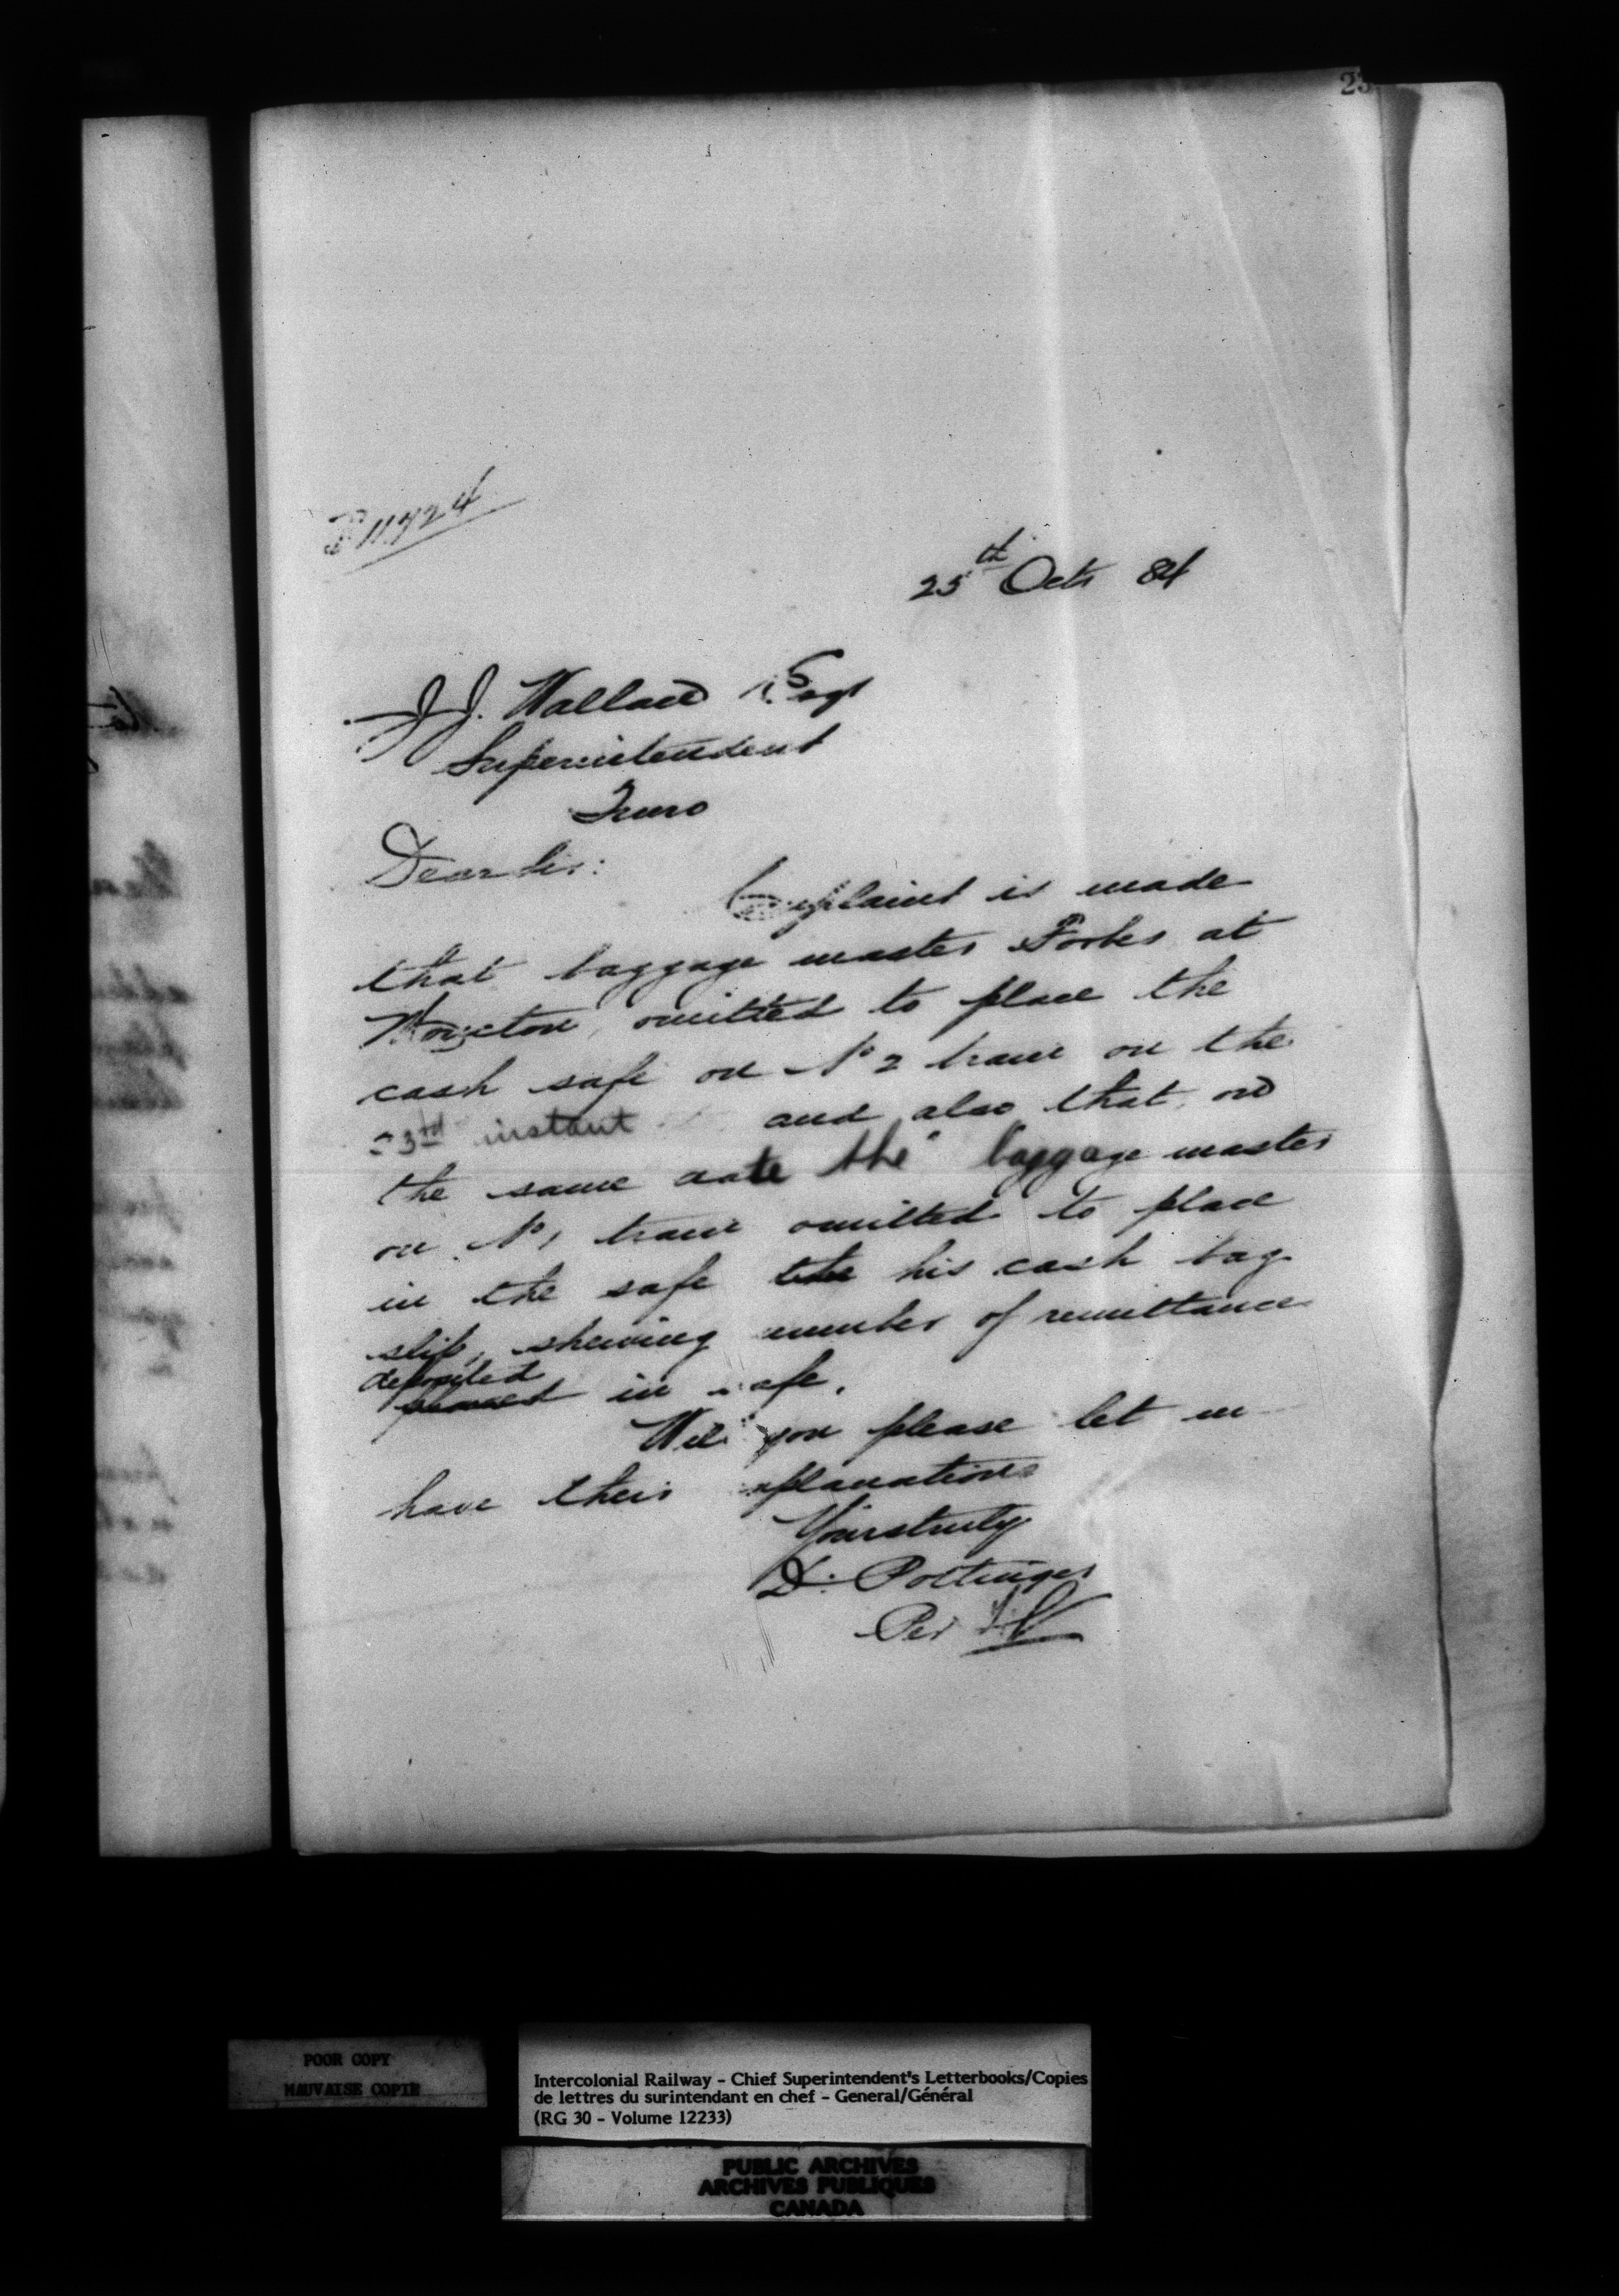 23
P 11724
25th Octr 84
J.J. Wallace Esqr
Superintendent
Truro
Dear Sir:
Complaint is made
that baggage master Forbes at
Moncton omitted to place the
cash safe on No 2 train on the
23rd instant and also that on
the same date the baggage master
on No 1 train omitted to place
in the safe the his cash bag
slip, shewing number of remittance
deposited
in safe.
Will you please let me
have their explanations
Yours truly
D. Pottinger
Per
POOR COPY
MAUVAISE COPIE
Intercolonial Railway - Chief Superintendent's Letterbooks/Copies
de lettres du surintendant en chef - General/Général
(RG 30 - Volume 12233)
PUBLIC ARCHIVES
ARCHIVES PUBLIQUES
CANADA